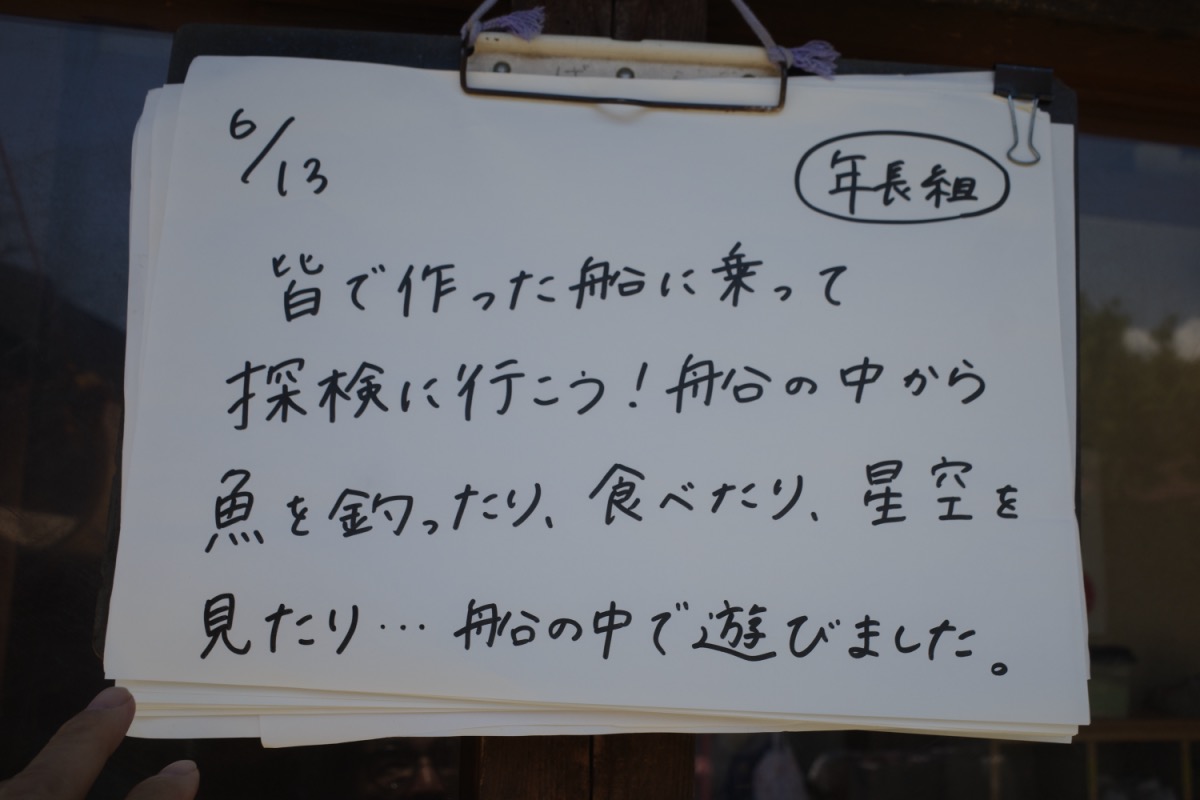 6/13
年長組
皆で作った船に乗って
探検に行こう!船の中から
魚を釣ったり、食べたり、星空を
見たり…船の中で遊びました。